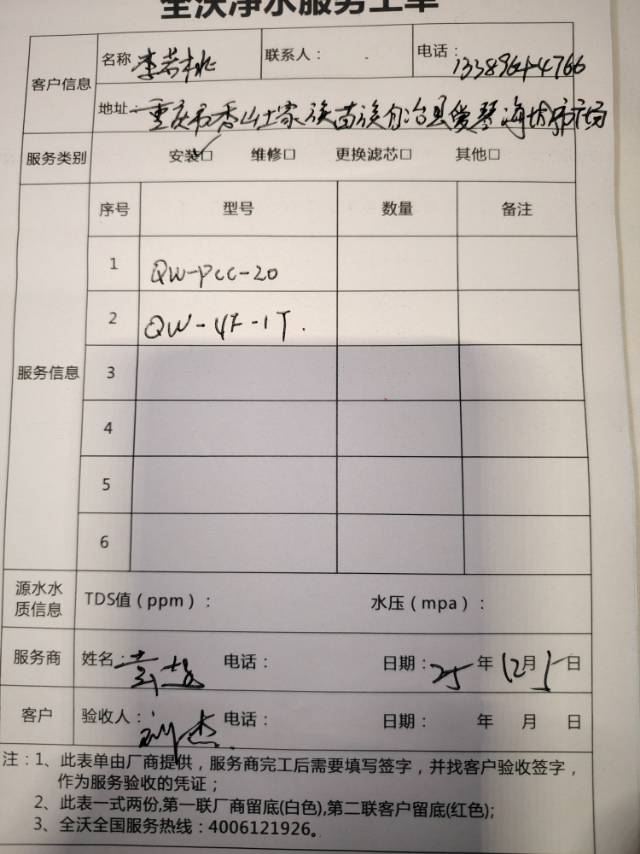 全沃净水服务工单
客户信息
名称 李若桃 联系人： 电话：
地址： 重庆市秀山土家族苗族自治县
服务类别 安装☑ 维修□ 更换滤芯□ 其他□
服务信息
序号 型号 数量 备注
1 QW-PCC-20
2 QW-4F-1T.
3
4
5
6
源水水质信息 TDS值（ppm）： 水压（mpa）：
服务商 姓名： 电话： 日期：25年12月5日
客户 验收人：刘杰 电话： 日期： 年 月 日
注：1、此表单由厂商提供，服务商完工后需要填写签字，并找客户验收签字，
作为服务验收的凭证；
2、此表一式两份,第一联厂商留底(白色),第二联客户留底(红色);
3、全沃全国服务热线：4006121926。